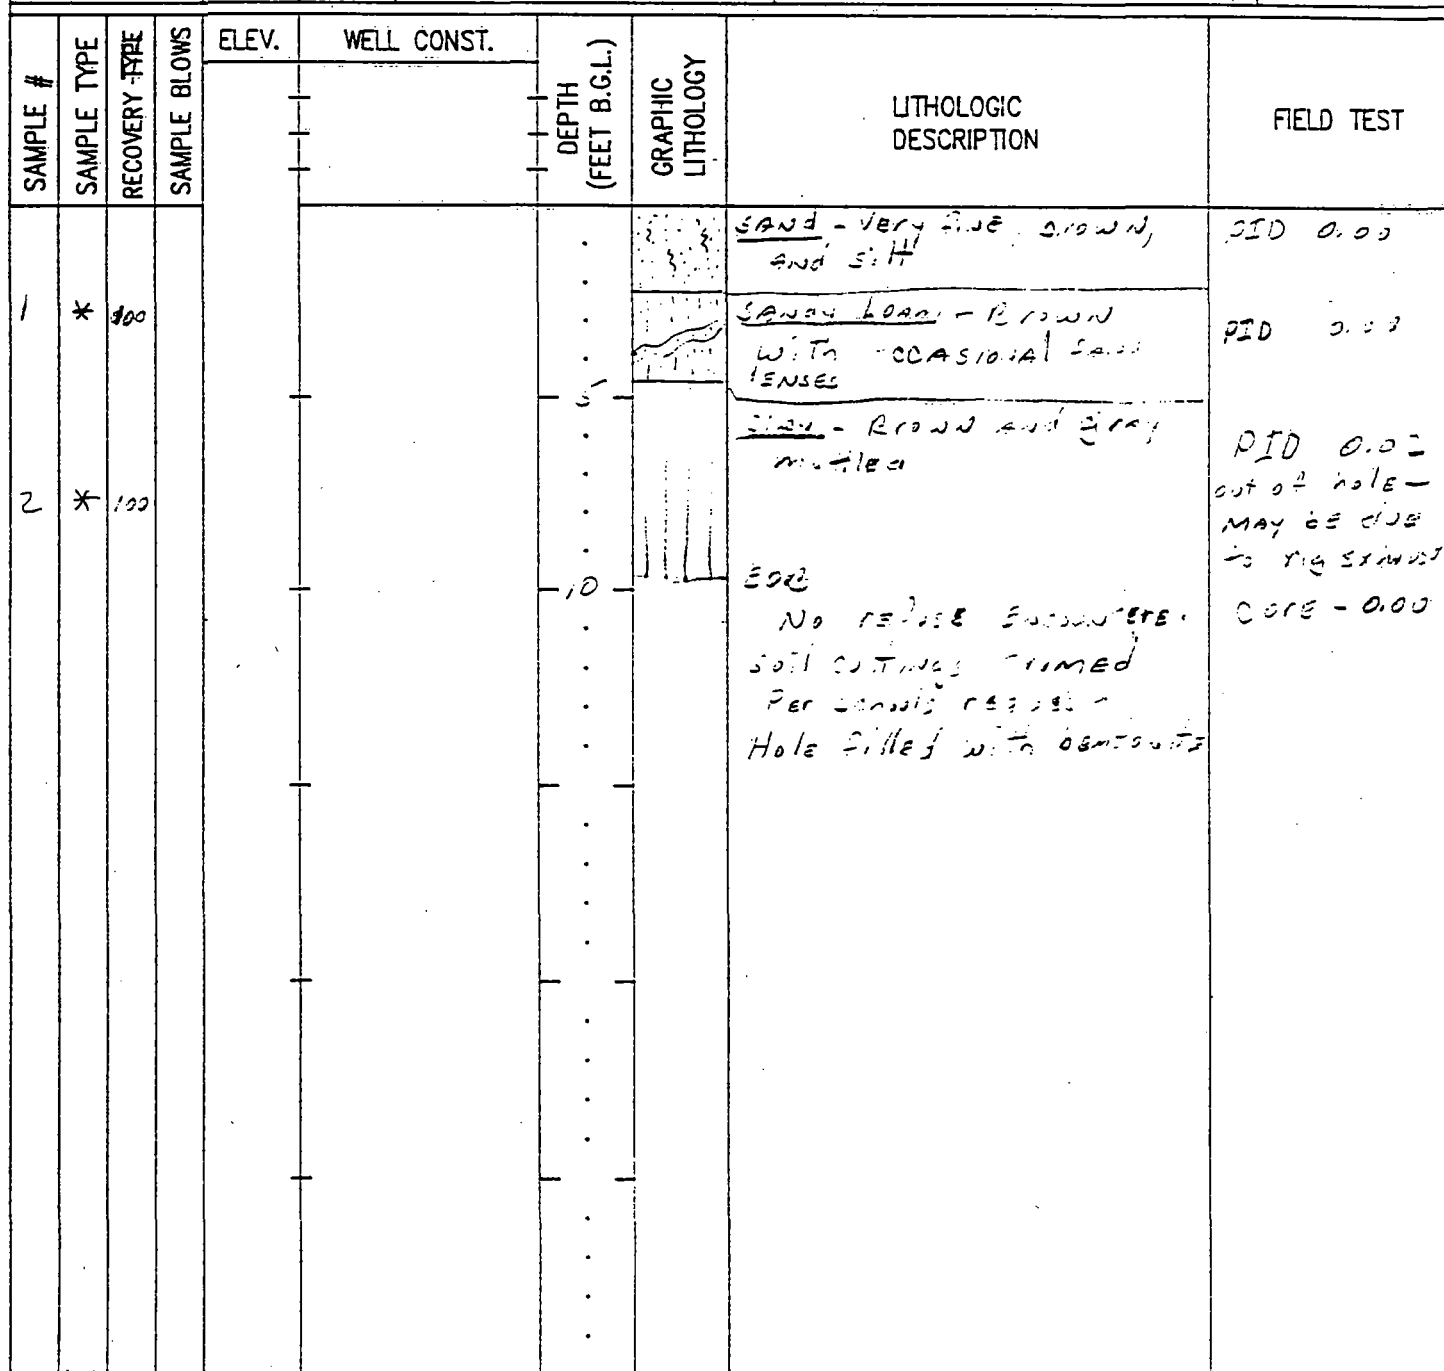 SAMPLE #
SAMPLE TYPE
RECOVERY TYPE
SAMPLE BLOWS
ELEV.
WELL CONST.
DEPTH
(FEET B.G.L.)
GRAPHIC
LITHOLOGY
LITHOLOGIC
DESCRIPTION
FIELD TEST
SAND - Very fine, brown,
and silt
PID 0.00
1 * 100
SANDY LOAM - Brown
with occasional sand
lenses
PID 0.00
5
- Brown and gray
mottled
PID
out of hole -
may be due
to rig exhaust
2 * 100
10
EOB
No refuse encountered
Core - 0.00
Soil cuttings
Per request
Hole filled with bentonite